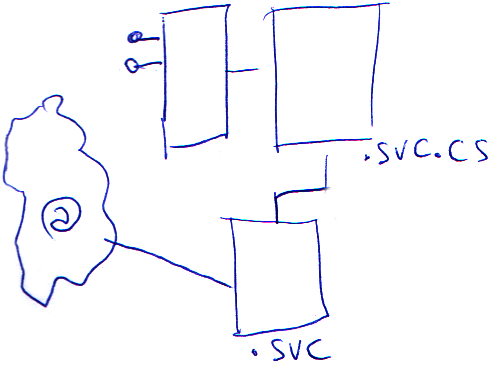 .SVC.CS
@
.SVC